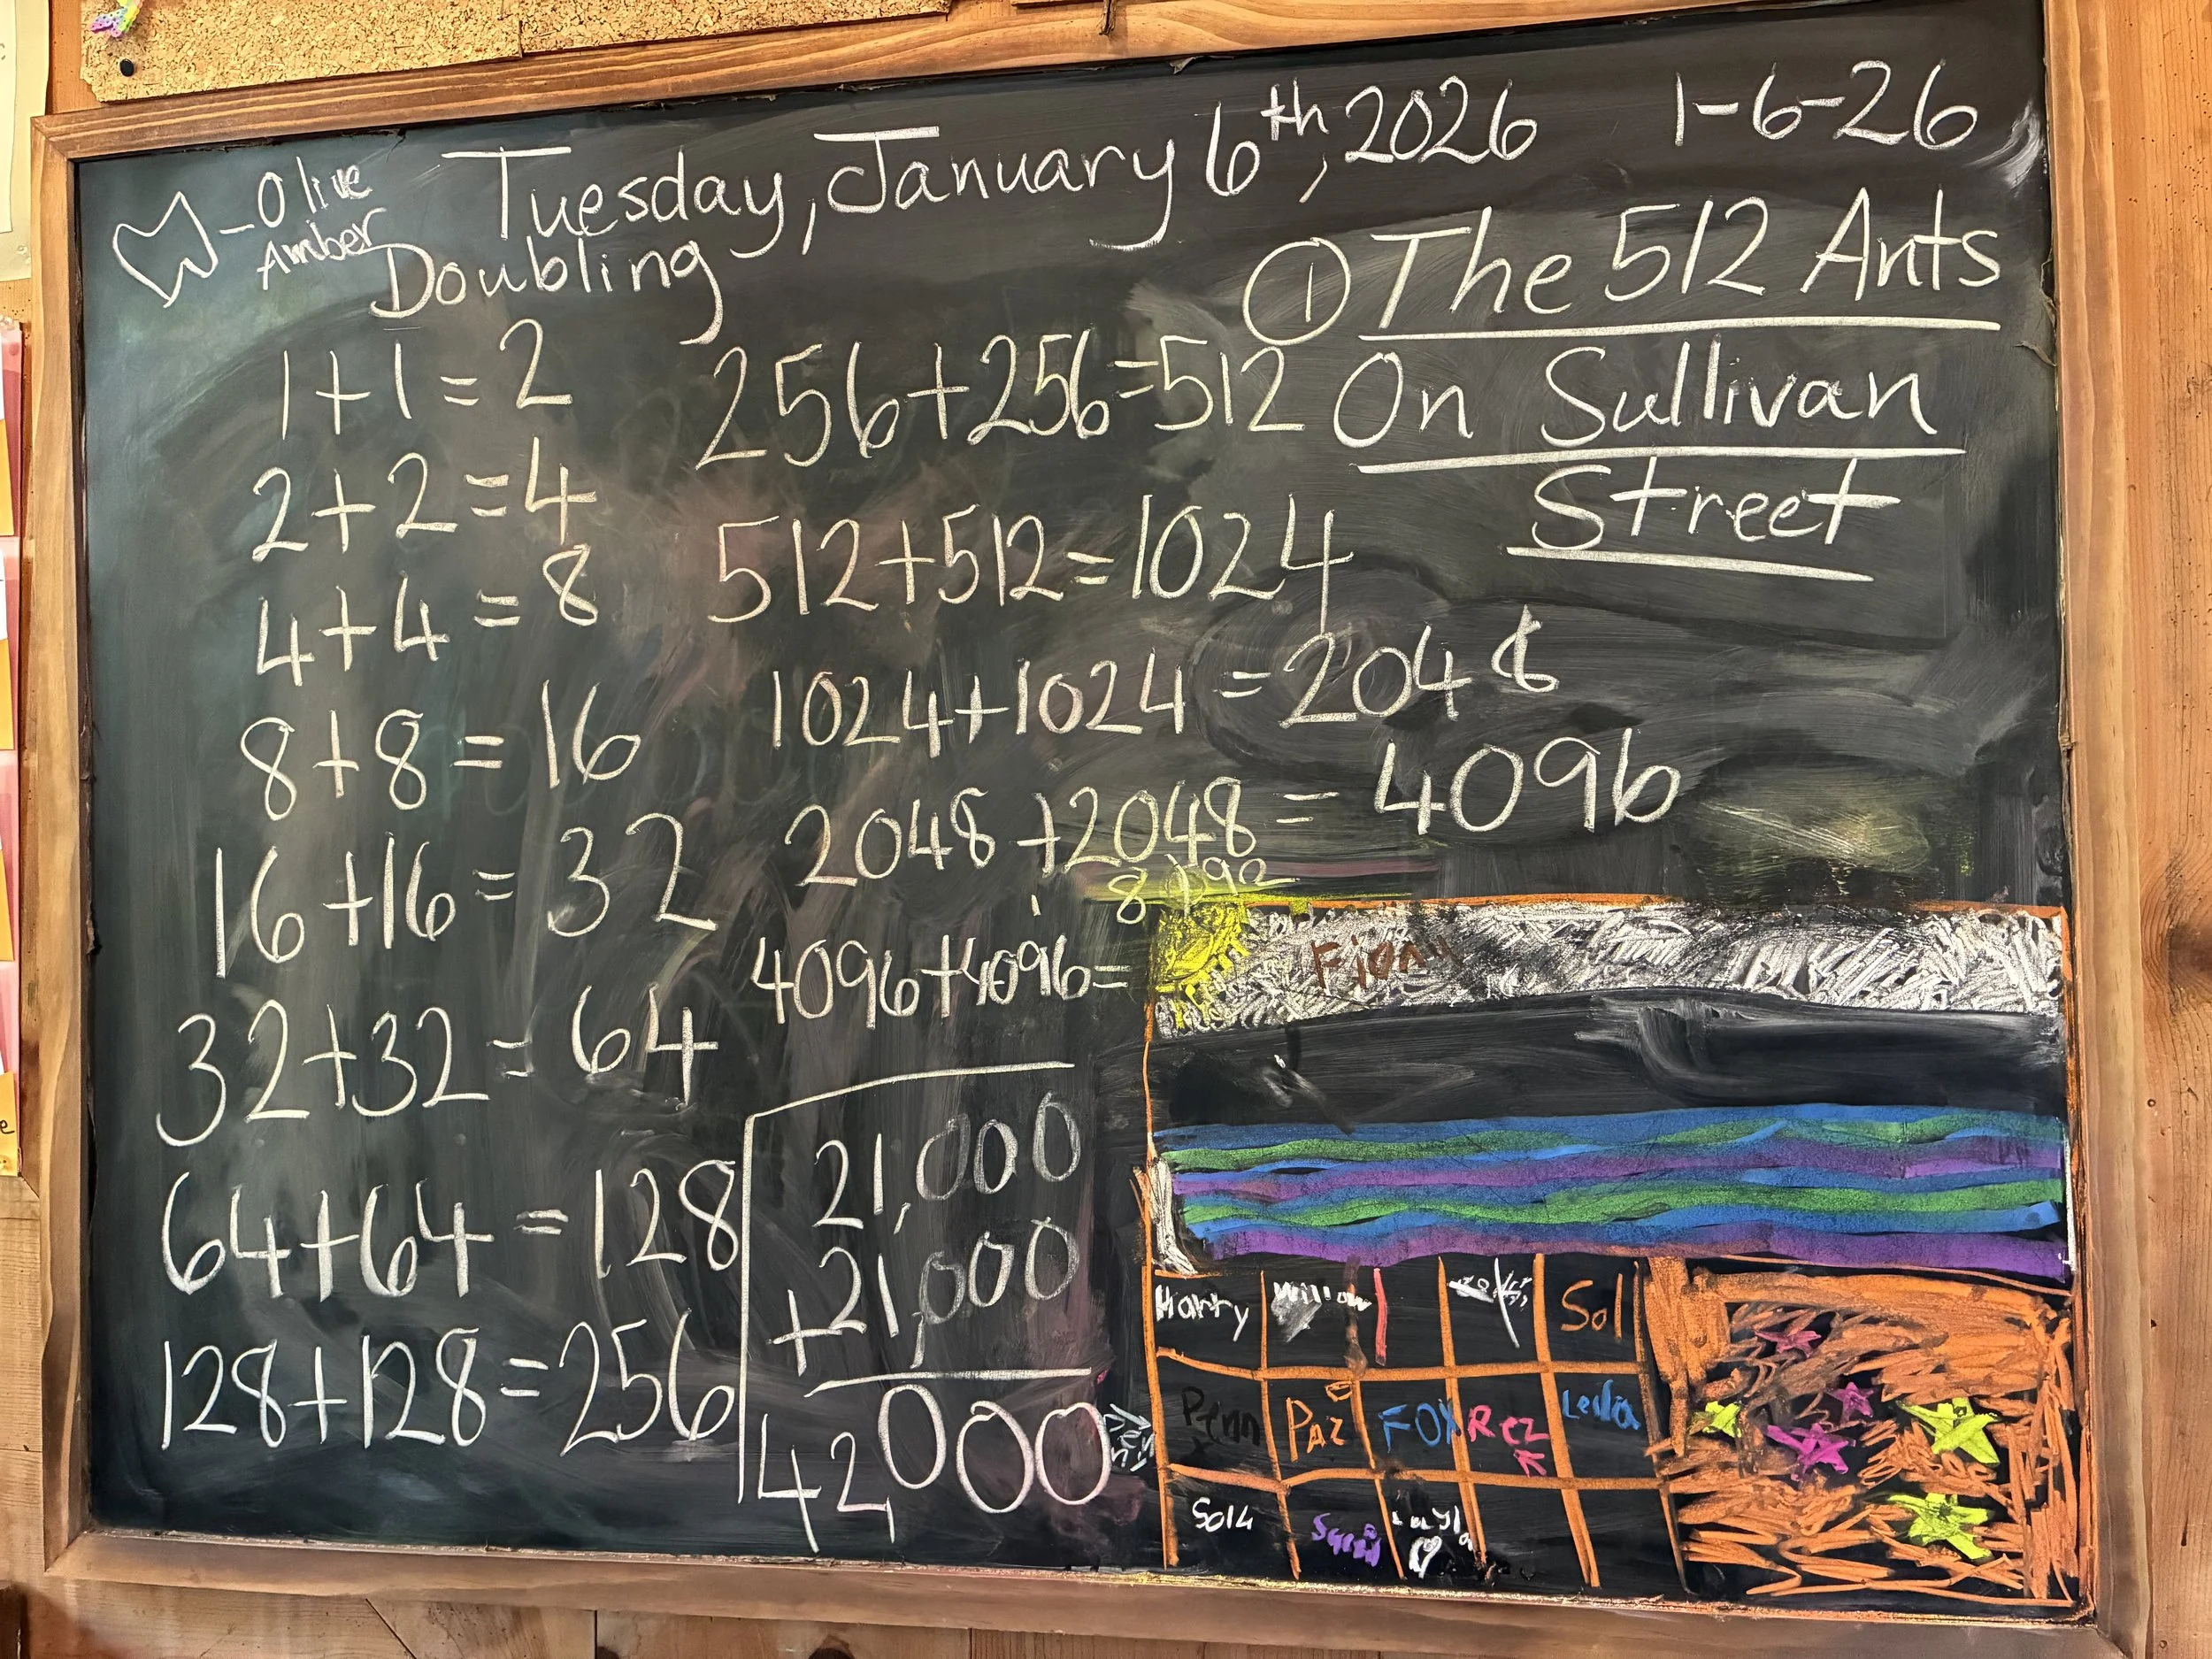 Tuesday, January 6th, 2026
1-6-26
- Olive
Amber
Doubling
1+1=2
2+2=4
4+4=8
8+8=16
16+16=32
32+32=64
64+64=128
128+128=256
256+256=512
512+512=1024
1024+1024=2048
2048+2048=4096
8192
4096+4096=
21,000
+21,000
42000
① The 512 Ants
On Sullivan
Street
Harry Willow Sol
Penn Paz FOX Rez Leila